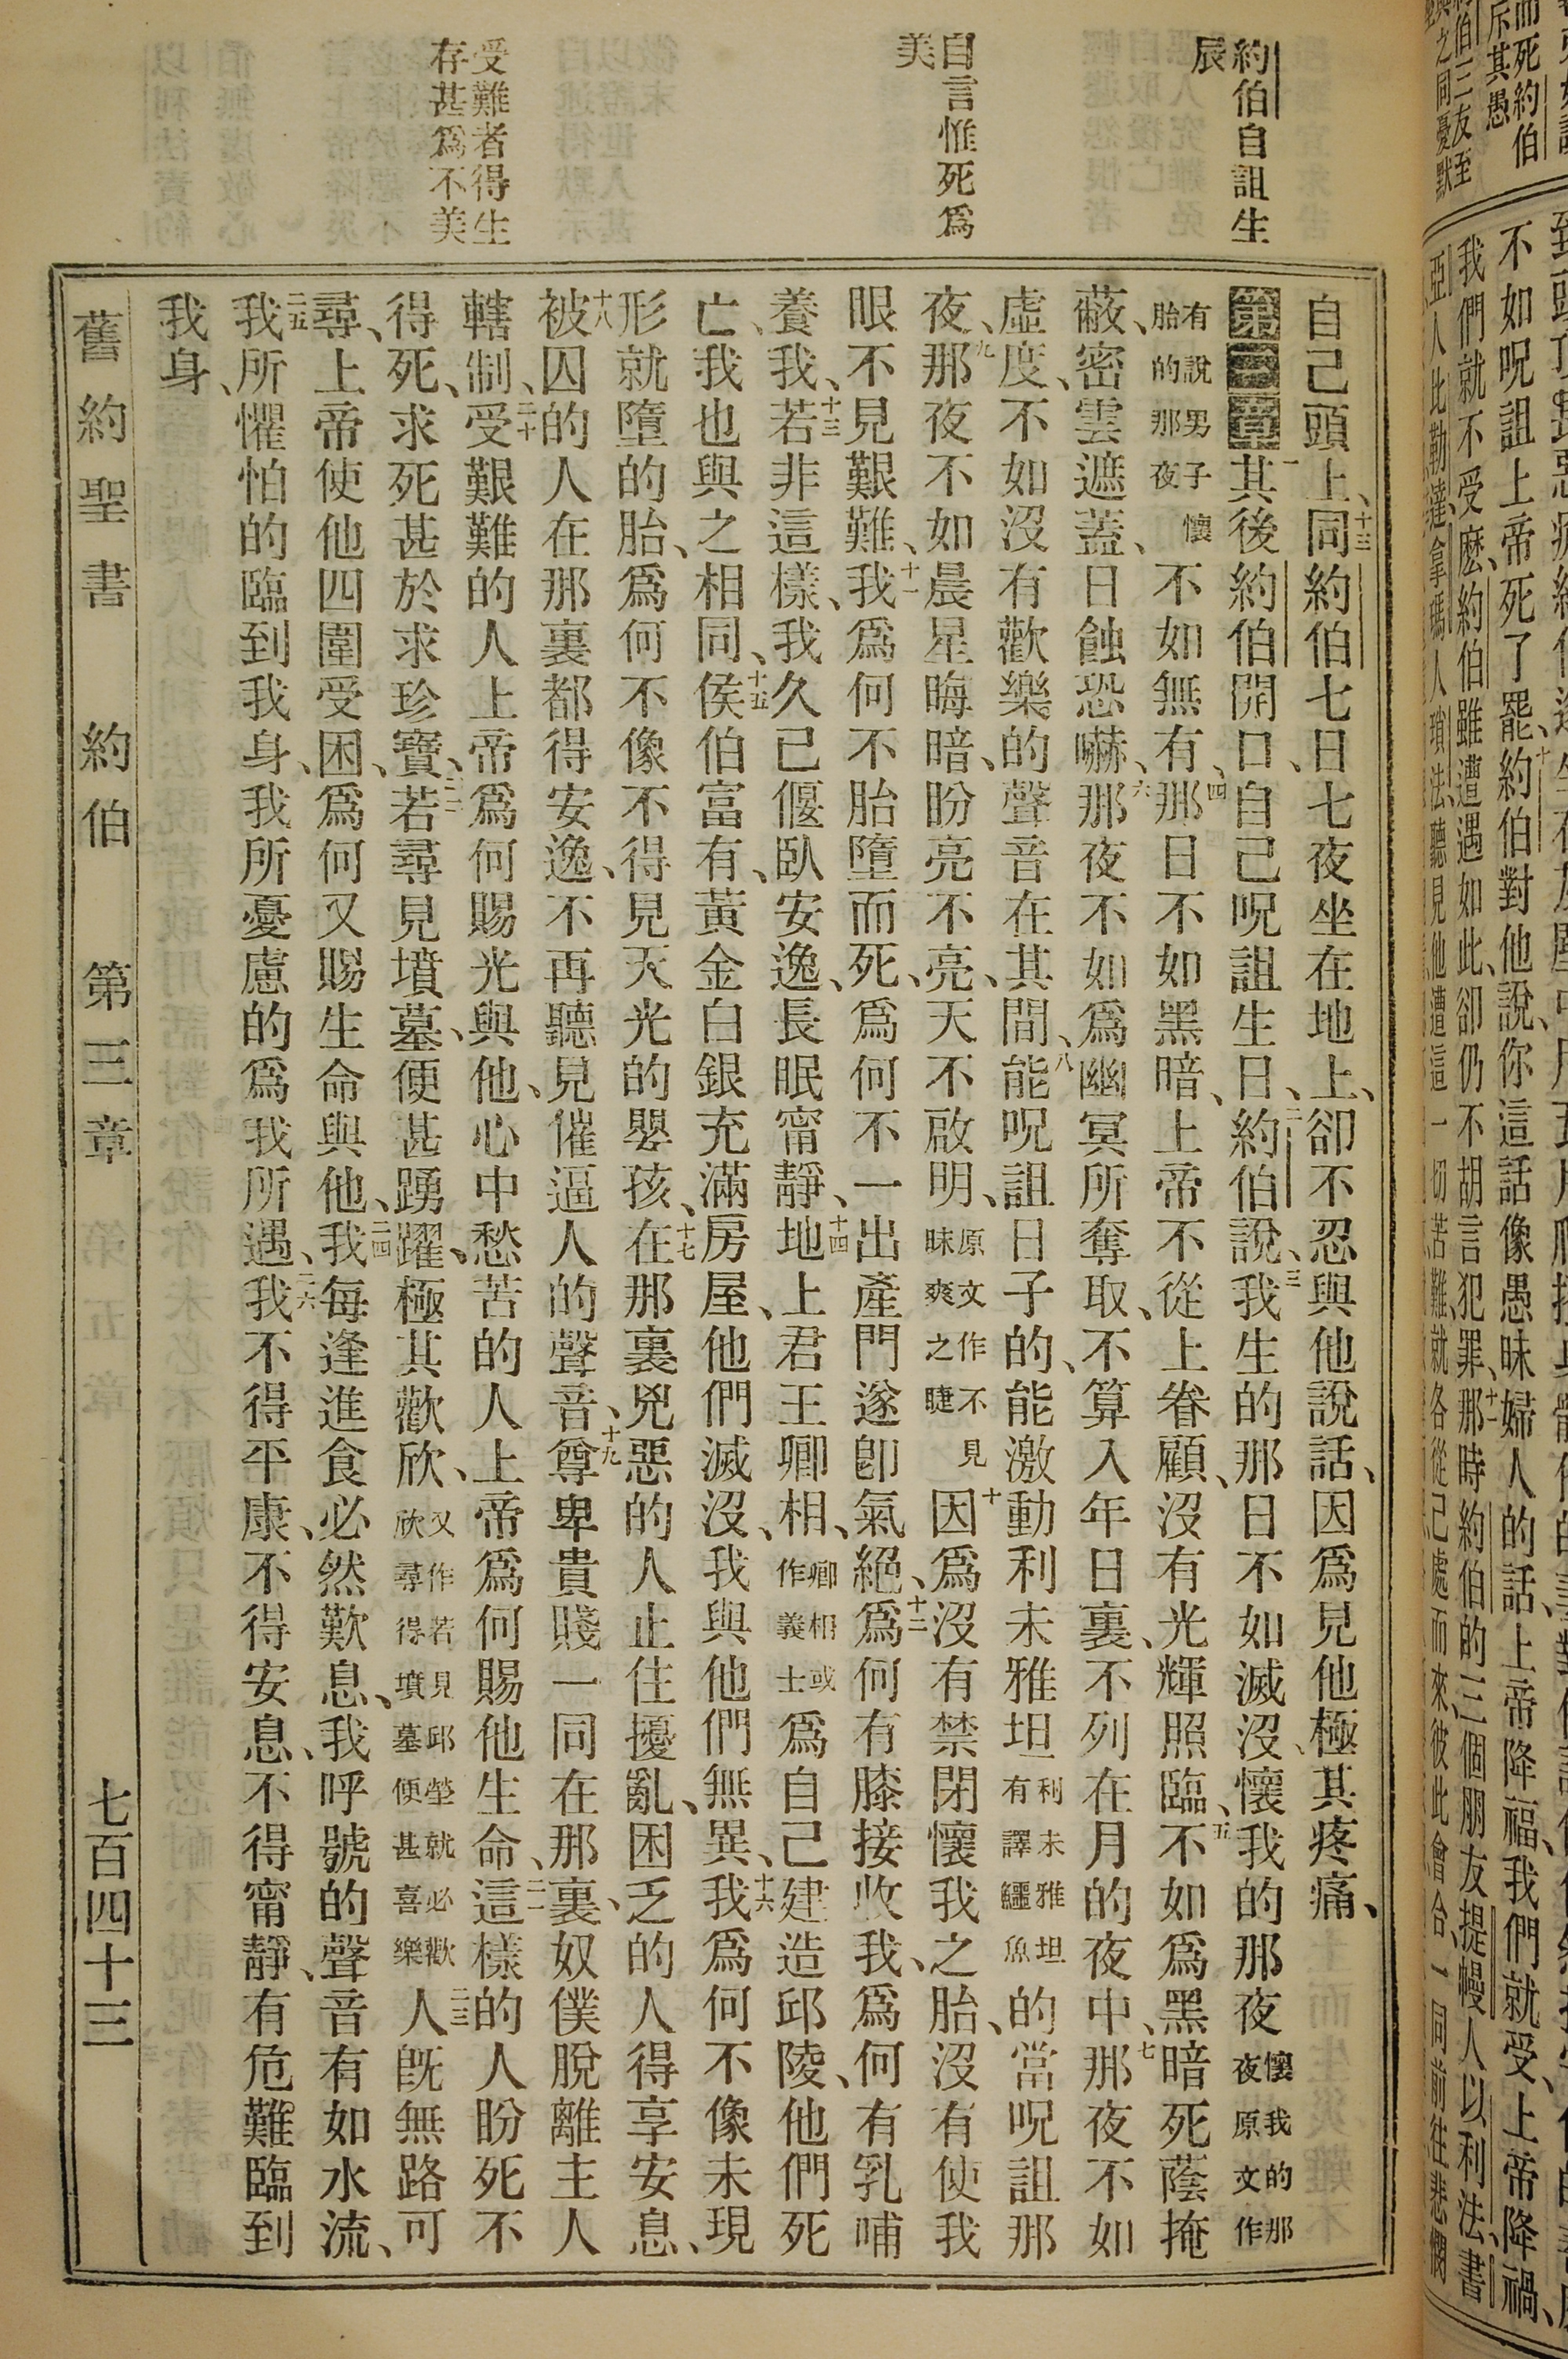 約伯自詛生
辰
自言惟死爲
美
受難者得生
存甚爲不美
自己頭上、十三同約伯七日七夜坐在地上、卻不忍與他說話、因爲見他極其疼痛、
第三章一其後約伯開口、自己呪詛生日、二約伯說、三我生的那日不如滅沒、懷我的那夜懷我的那夜原文作
有說男子懷胎的那夜不如無有、四那日不如黑暗、上帝不從上眷顧、沒有光輝照臨、五不如爲黑暗死蔭掩
蔽、密雲遮蓋、日蝕恐嚇、六那夜不如爲幽冥所奪取、不算入年日裏、不列在月的夜中、七那夜不如
虛度、不如沒有歡樂的聲音在其間、八能呪詛日子的、能激動利未雅坦利未雅坦有譯鱷魚的當呪詛那
夜、九那夜不如晨星晦暗、盼亮不亮、天不啟明、原文作不見昧爽之睫十因爲沒有禁閉懷我之胎、沒有使我
眼不見艱難、十一我爲何不胎墮而死、爲何不一出產門遂卽氣絕、十二爲何有膝接收我、爲何有乳哺
養我、十三若非這樣、我久已偃臥安逸、長眠甯靜、十四地上君王卿相、卿相或作義士爲自己建造邱陵、他們死
亡、我也與之相同、十五侯伯富有、黃金白銀充滿房屋、他們滅沒、我與他們無異、十六我爲何不像未現
形就墮的胎、爲何不像不得見天光的嬰孩、十七在那裏兇惡的人止住擾亂、困乏的人得享安息、
十八被囚的人在那裏都得安逸、不再聽見催逼人的聲音、十九尊卑貴賤一同在那裏、奴僕脫離主人
轄制、二十受艱難的人上帝爲何賜光與他、心中愁苦的人上帝爲何賜他生命、二一這樣的人盼死不
得死、求死甚於求珍寶、二二若尋見墳墓、便甚踴躍、極其歡欣、又作若見邱塋就必歡欣尋得墳墓便甚喜樂二三人旣無路可
尋、上帝使他四圍受困、爲何又賜生命與他、二四我每逢進食必然歎息、我呼號的聲音有如水流、
二五我所懼怕的臨到我身、我所憂慮的爲我所遇、二六我不得平康、不得安息、不得甯靜、有危難臨到
我身、
舊約聖書 約伯 第三章 七百四十三